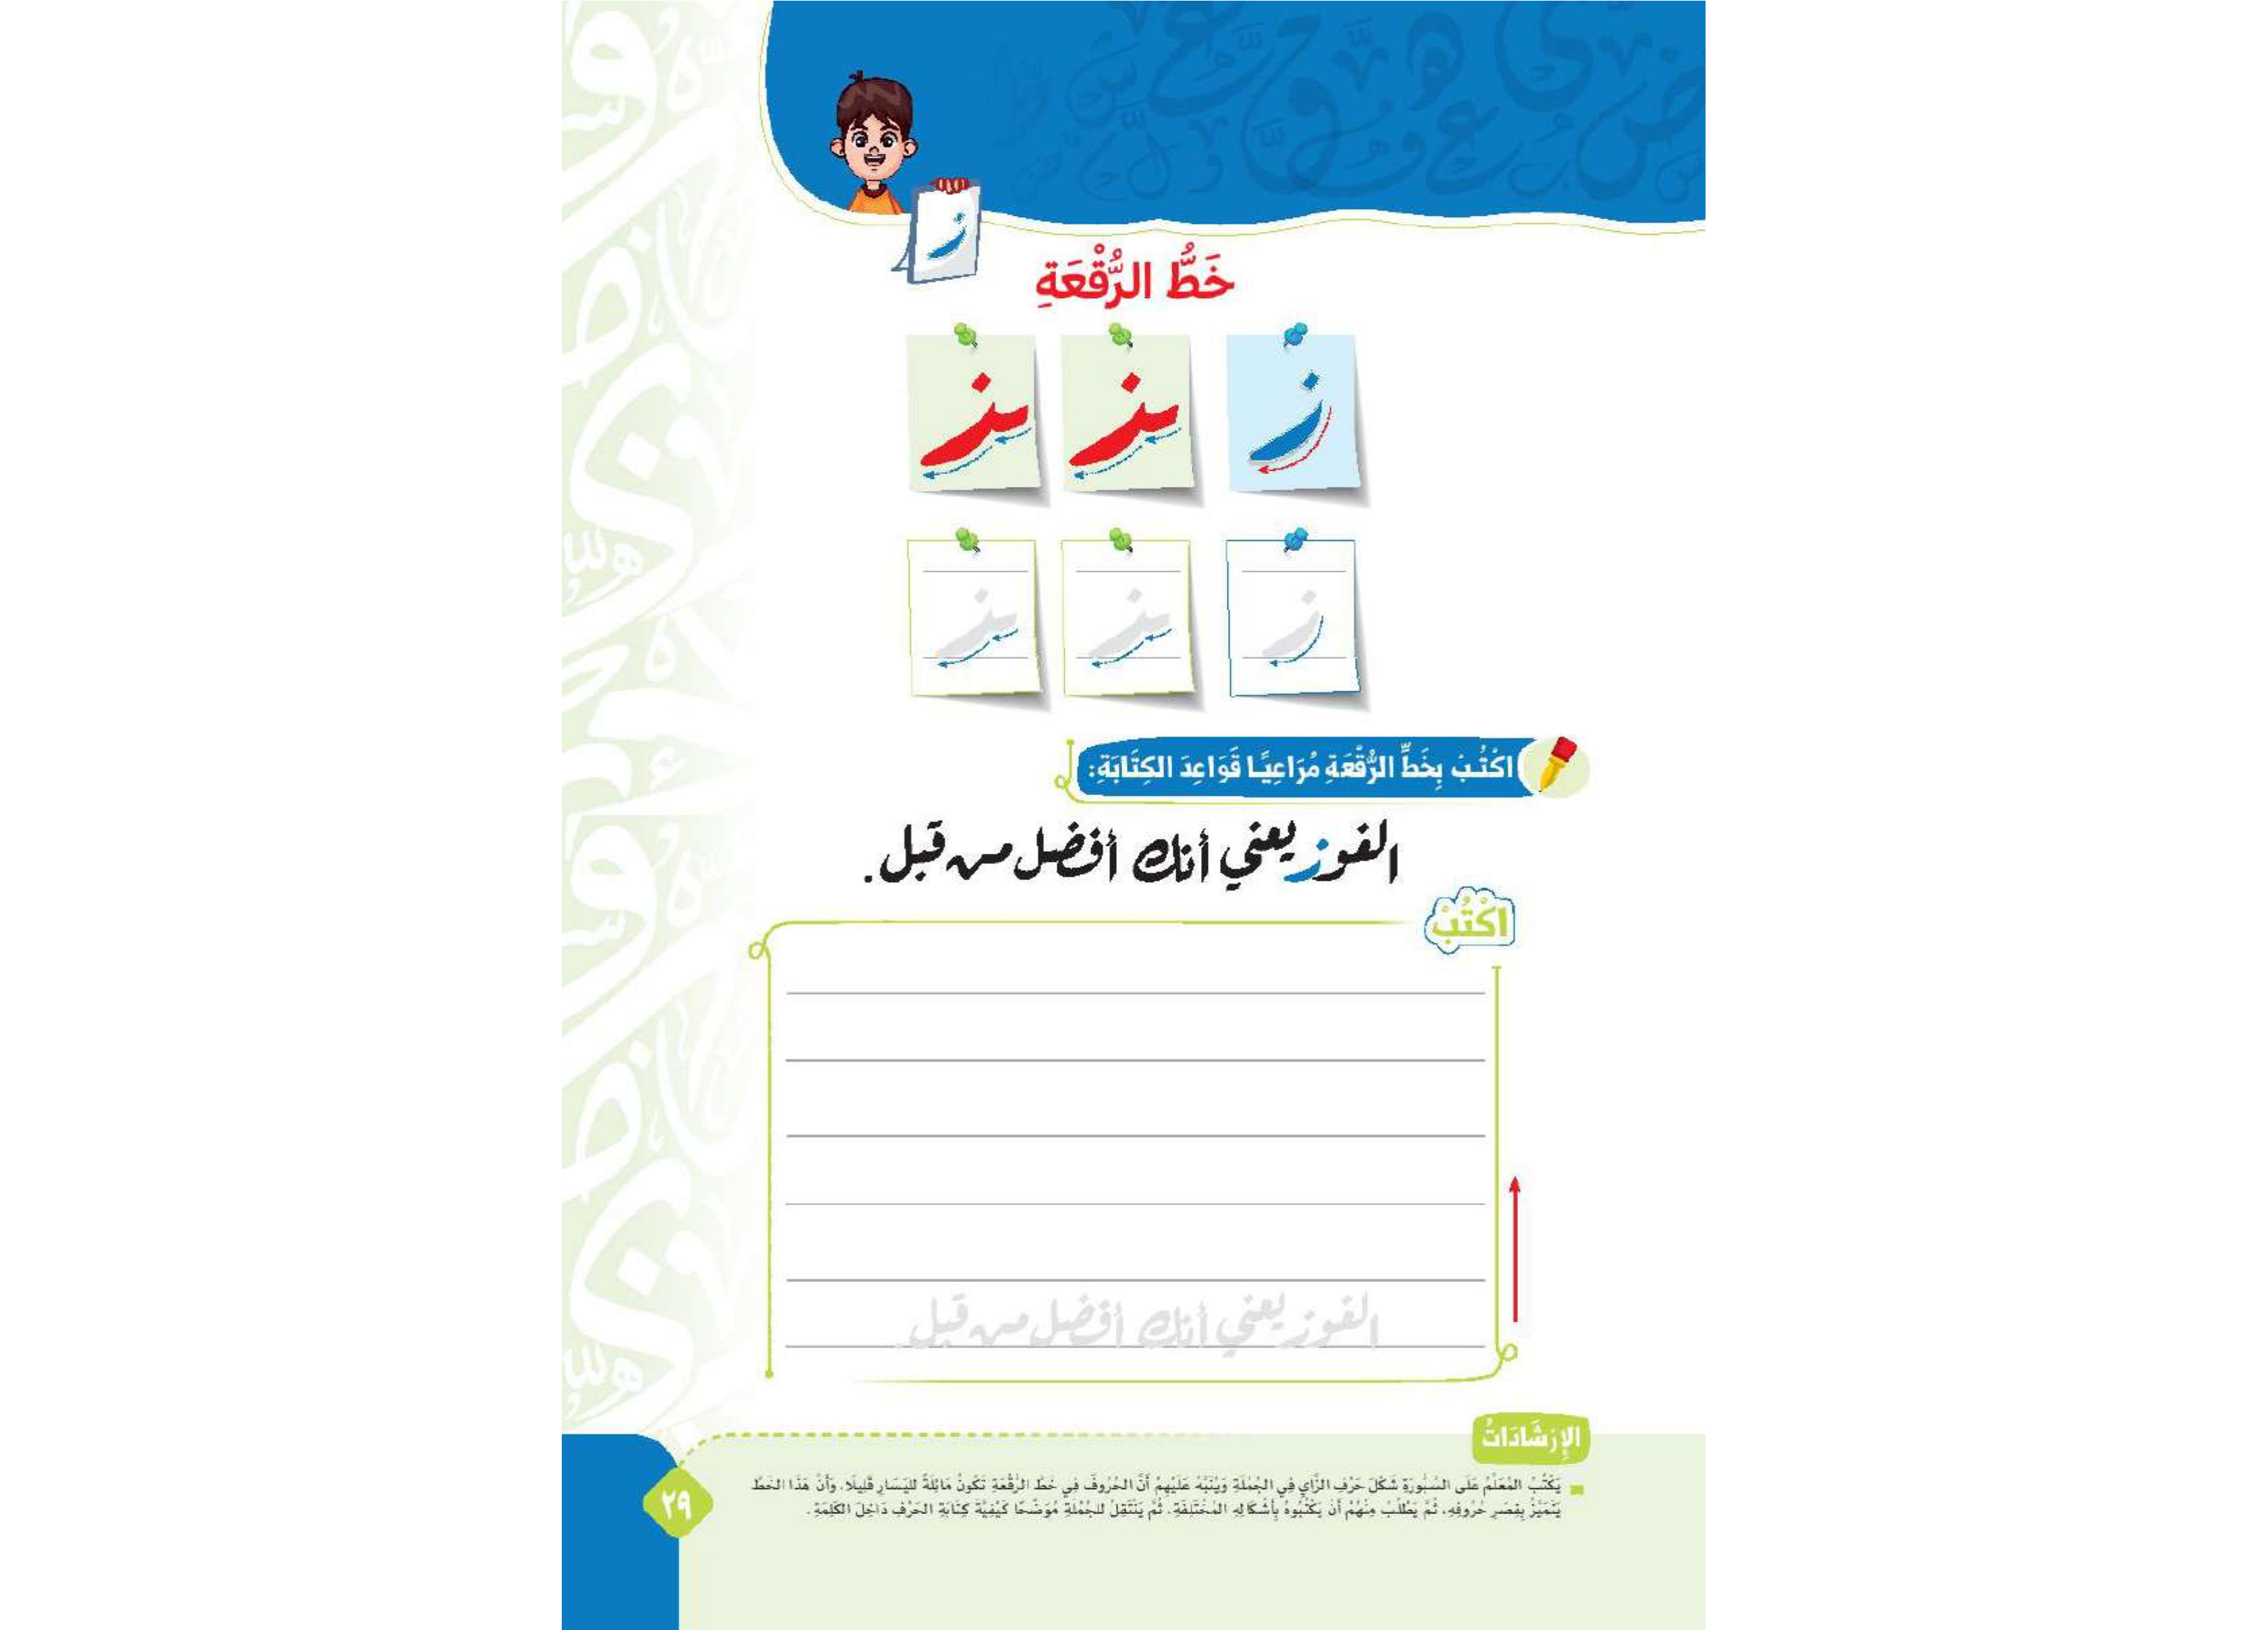 ز
خَطُّ الرُّقْعَةِ
ز ـز ـز
ز ـز ـز
اكْتُبْ بِخَطِّ الرُّقْعَةِ مُرَاعِيًا قَوَاعِدَ الكِتَابَةِ:
الفوز يعني أنك أفضل من قبل.
اكْتُبْ
الفوز يعني أنك أفضل من قبل.
الإِرْشَادَاتُ
يَكْتُبُ المُعَلِّمُ عَلَى السَّبُّورَةِ شَكْلَ حَرْفِ الزَّايِ فِي الجُمْلَةِ وَيُنَبِّهُ عَلَيْهِمْ أَنَّ الحُرُوفَ فِي خَطِّ الرُّقْعَةِ تَكُونُ مَائِلَةً لليَسَارِ قَلِيلًا، وَأَنَّ هَذَا الخَطَّ
يَتَمَيَّزُ بِقِصَرِ حُرُوفِهِ، ثُمَّ يَطْلُبُ مِنْهُمْ أَنْ يَكْتُبُوهُ بِأَشْكَالِهِ المُخْتَلِفَةِ، ثُمَّ يَنْتَقِلُ للجُمْلَةِ مُوَضِّحًا كَيْفِيَّةَ كِتَابَةِ الحَرْفِ دَاخِلَ الكَلِمَةِ.
٢٩